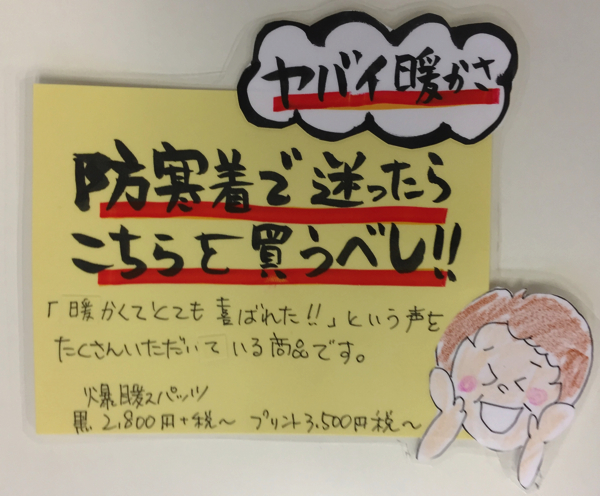 ヤバイ暖かさ
防寒着で迷ったら
こちらを買うべし!!
「暖かくてとても喜ばれた!!」という声を
たくさんいただいている商品です。
爆暖スパッツ
黒 2,800円+税〜 プリント3,500円税〜